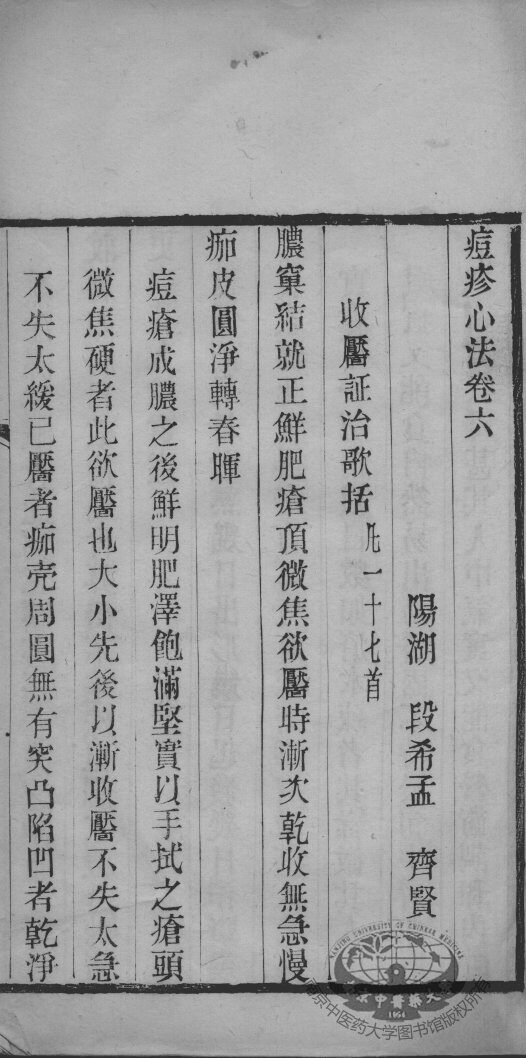 痘疹心法卷六
陽湖 段希孟 齊賢
收靨証治歌括 凡一十七首
膿窠結就正鮮肥瘡頂微焦欲靨時漸次乾收無急慢
痂皮圓淨轉春暉
痘瘡成膿之後鮮明肥澤飽滿堅實以手拭之瘡頭
微焦硬者此欲靨也大小先後以漸收靨不失太急
不失太緩已靨者痂壳周圓無有突凸陷凹者乾淨
NANJING UNIVERSITY OF CHINESE MEDICINE
南京中醫藥大學
1954
南京中医药大学图书馆版权所有